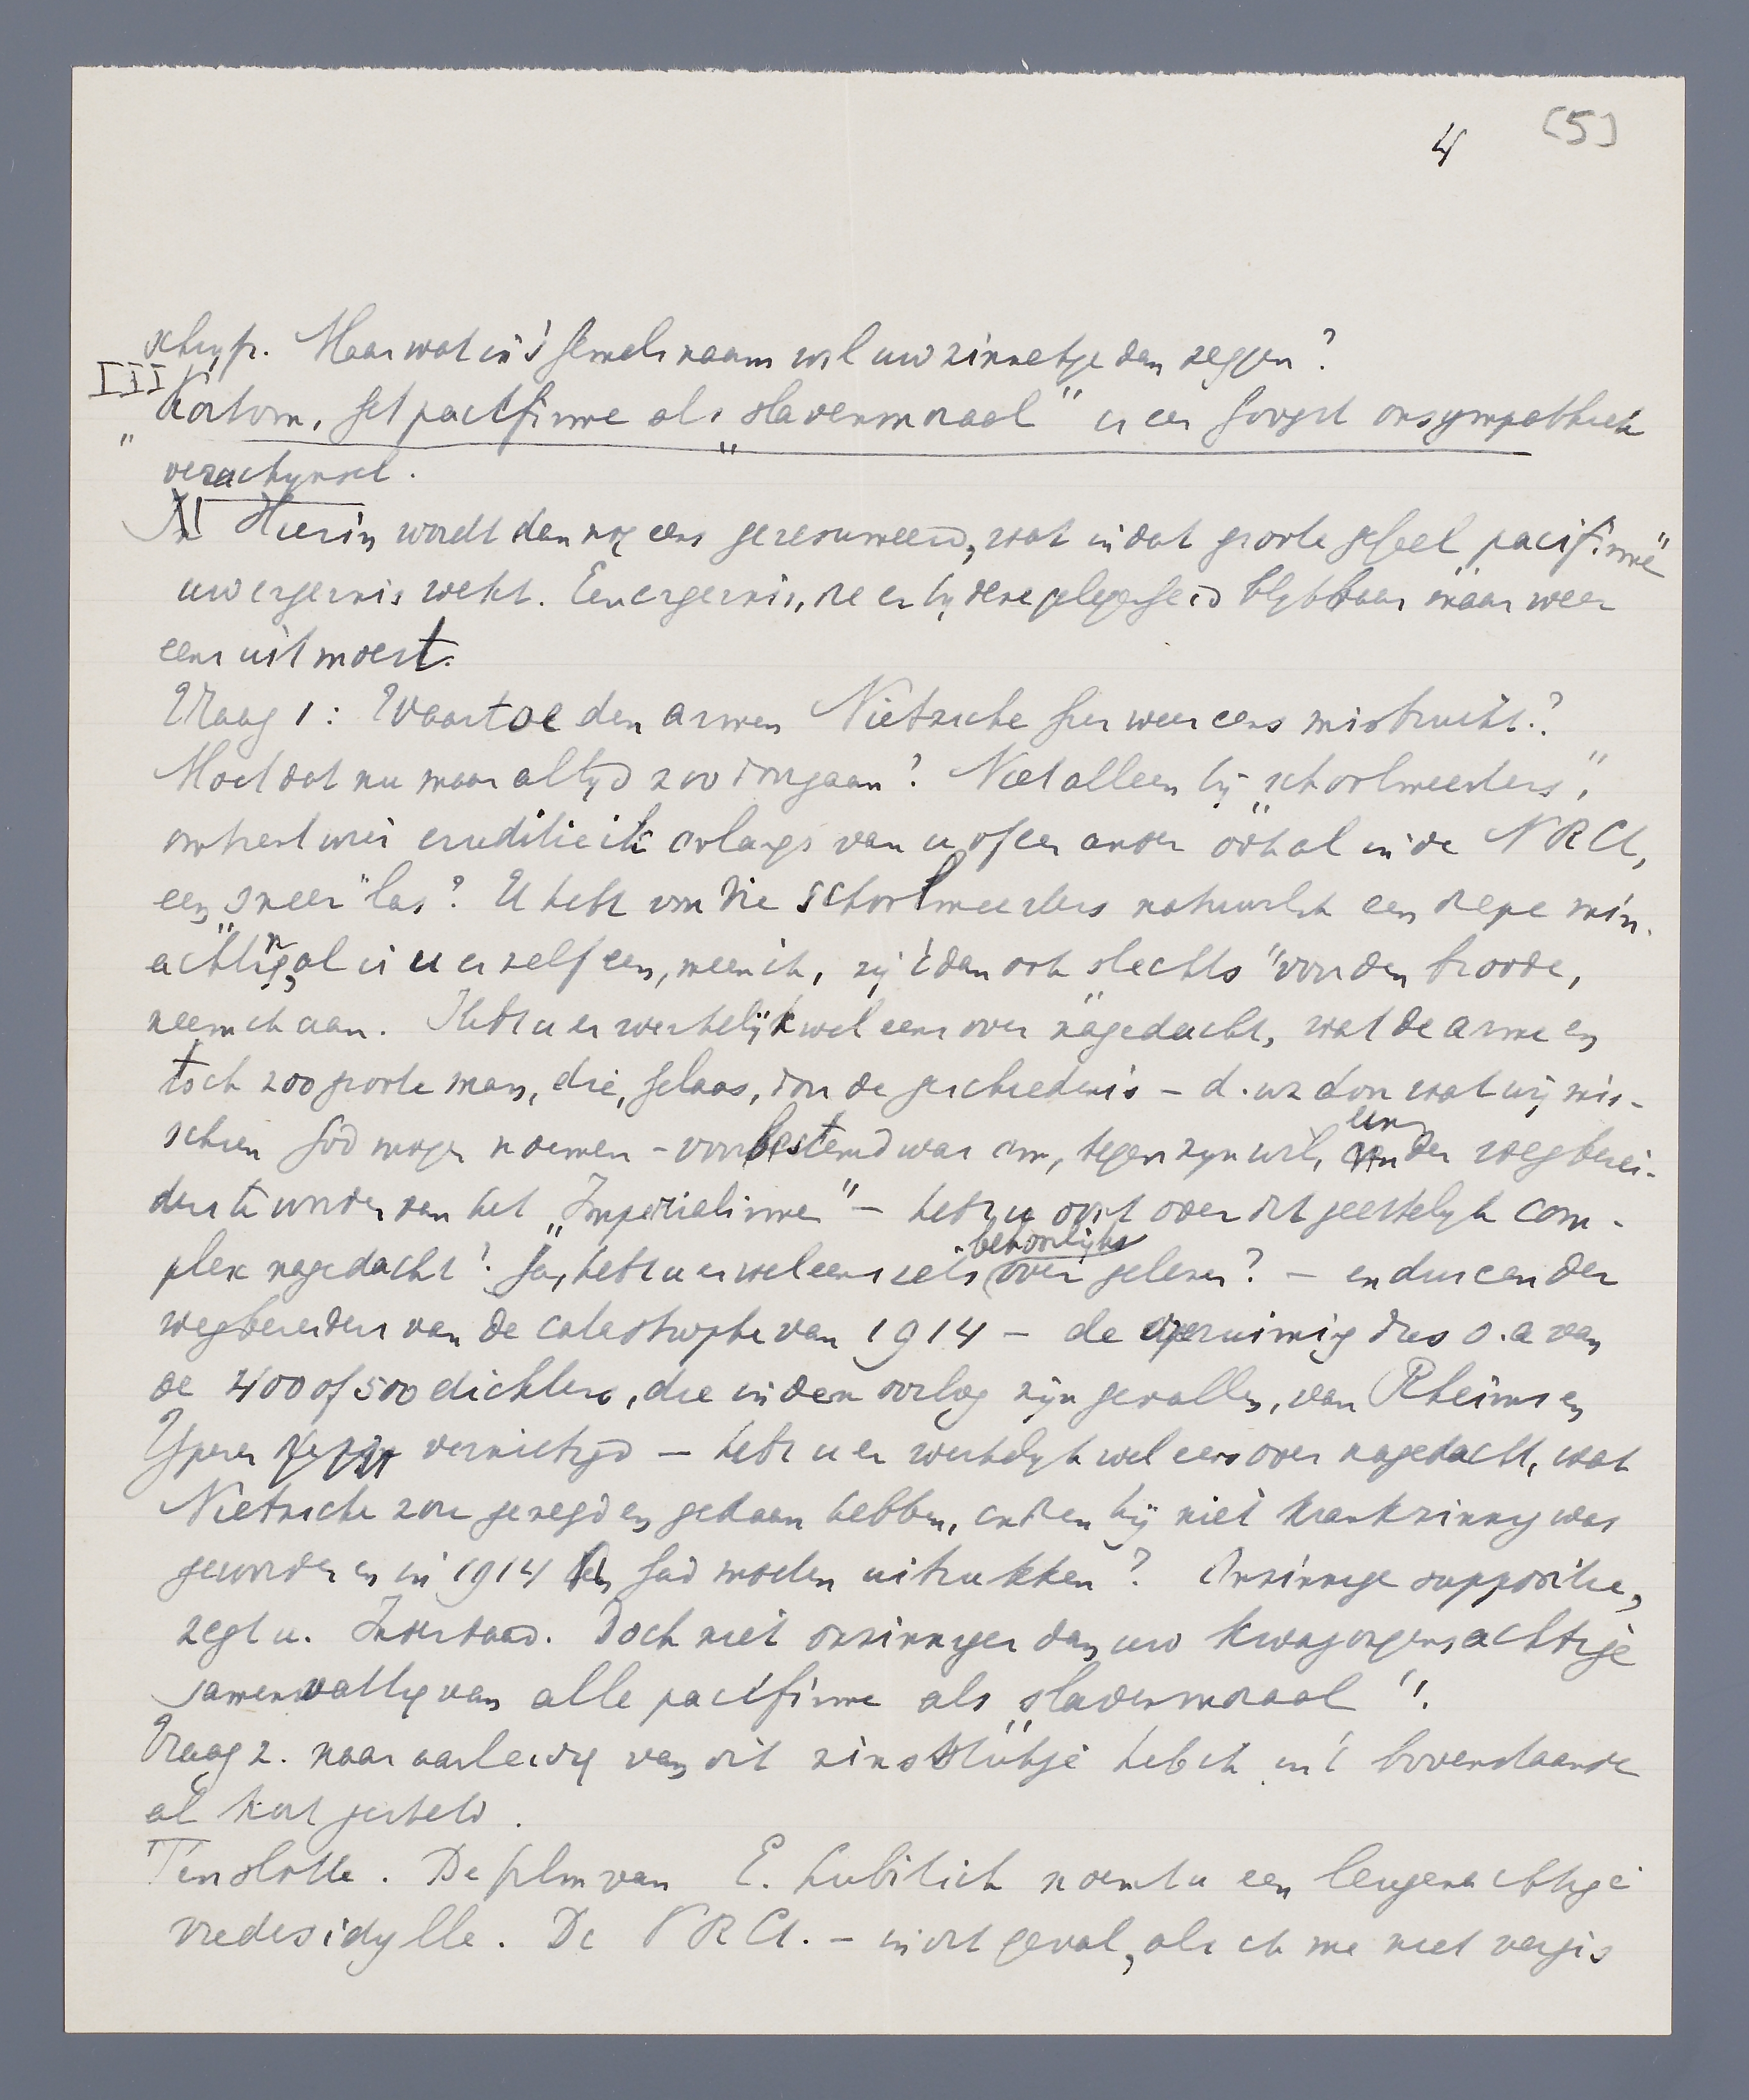 4 [5]
schrijft. Maar wat in 's hemelsnaam wil uw zinnetje dan zeggen?
III
"Kortom, het pacifisme als "slavenmoraal" is een hoogst onsympathiek
verschijnsel.
Hierin wordt dan nog eens geresumeerd, wat in dat groote geheel "pacifisme"
uw ergernis wekt. Een ergernis, die er bij deze gelegenheid blijkbaar maar weer
eens uit moest.
Vraag 1: Waartoe den armen Nietzsche hier weer eens misbruikt?
Moet dat nu maar altijd zoo doorgaan? Niet alleen bij "schoolmeesters",
omtrent wier eruditie ik onlangs van u of een ander ook al in de NRCt,
een "sneer" las? U hebt voor die schoolmeesters natuurlijk een diepe min-
achting, al is u er zelf een, meen ik, zij 't dan ook slechts "voor den broode,
neem ik aan. Hebt u er werkelijk wel eens over nagedacht, wat de arme en
toch zoo groote man, die, helaas, door de geschiedenis – d.w.z door wat wij mis-
schien God mogen noemen – voorbestemd was om, tegen zijn wil, een der wegberei-
ders te worden van het "Imperialisme" – hebt u ooit over dit geestelijk com-
plex nagedacht? Ja, hebt u er wel eens iets behoorlijks over gelezen? – en dus een der
wegbereiders van de catastrophe van 1914 – de opruiming dus o.a van
de 400 of 500 dichters, die in den oorlog zijn gevallen, van Rheims en
Yperen vernietigd – hebt u er werkelijk wel eens over nagedacht, wat
Nietzsche zou gezegd en gedaan hebben, indien hij niet krankzinnig was
geworden en in 1914 had moeten uitrukken? Onzinnige suppositie,
zegt u. Inderdaad. Doch niet onzinniger dan uw kwajongensachtige
samenvatting van alle pacifisme als "slavenmoraal".
Vraag 2. naar aanleiding van dit zinsstukje heb ik in 't bovenstaande
al kort gesteld.
Tenslotte. De film van E. Lubitich noemt u een leugenachtige
vredesidylle. De NRCt. – in dit geval, als ik me niet vergis